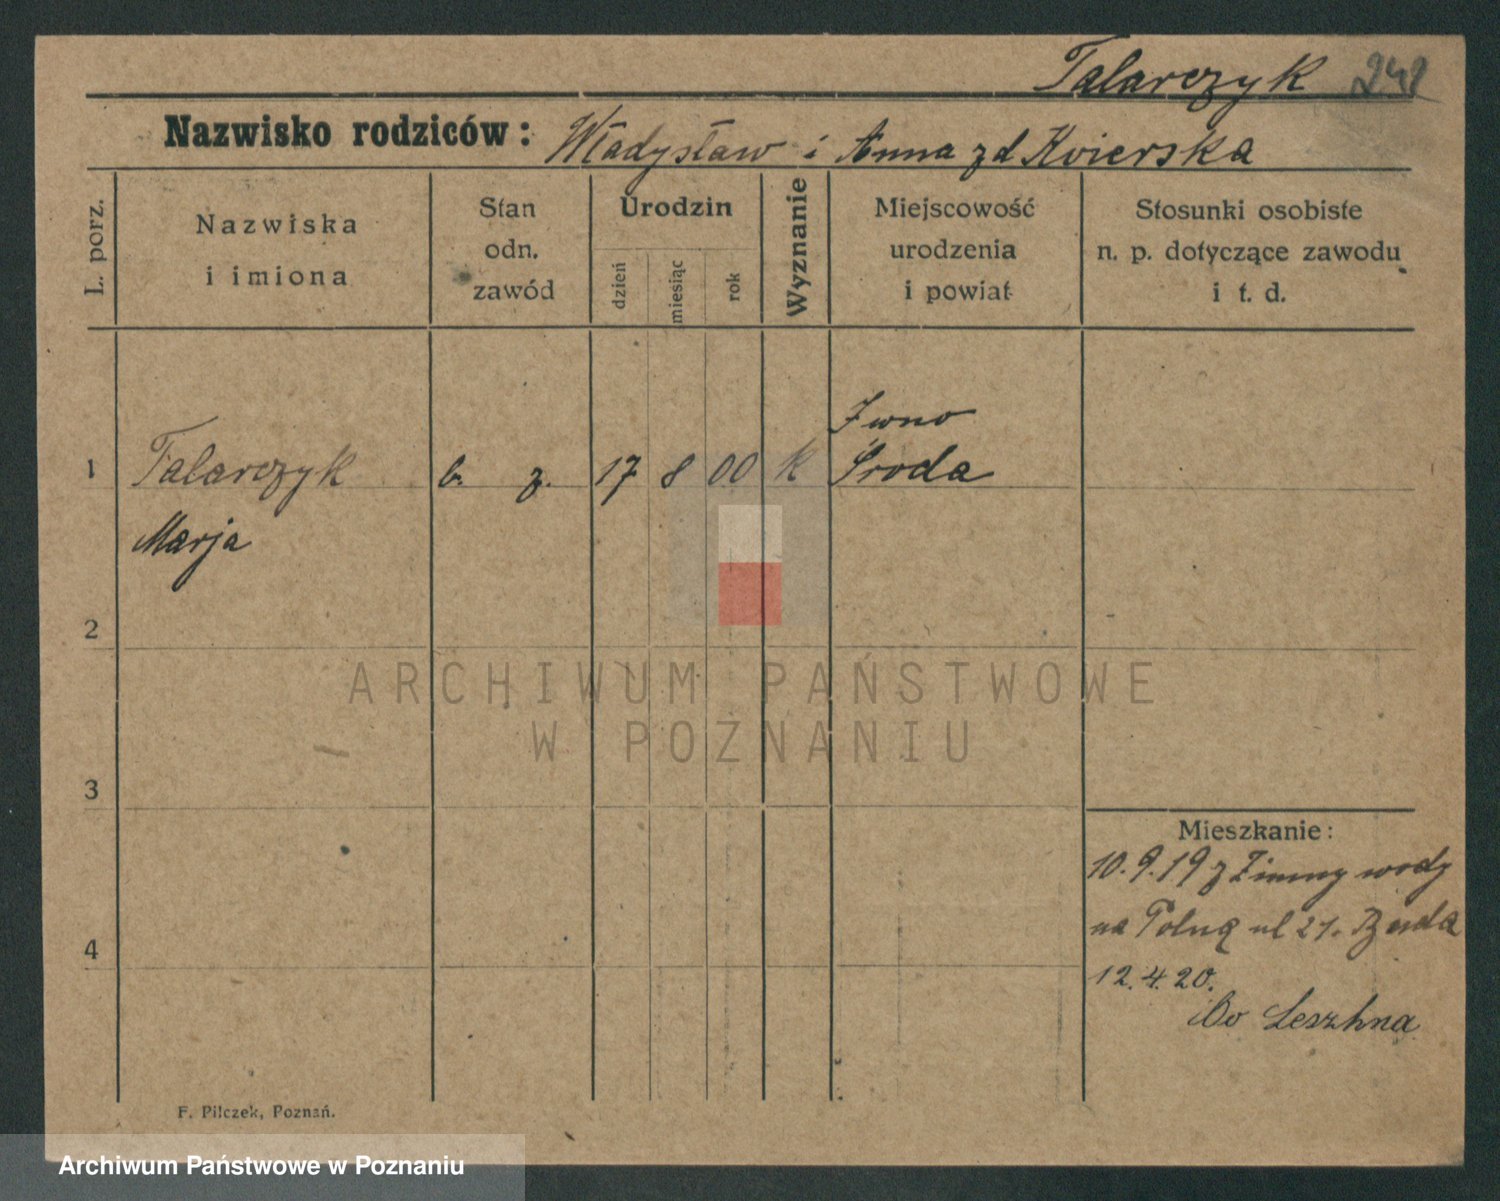 Talarczyk 248
Nazwisko rodziców: Władysław i Anna zd Kvierska
L. porz.
Nazwiska
i imiona
Stan
odn.
zawód
Urodzin
dzień
miesiąc
rok
Wyznanie
Miejscowość
urodzenia
i powiat
Stosunki osobiste
n. p. dotyczące zawodu
i t. d.
Iwno
1 Talarczyk b. z. 17 8 00 k Środa
Marja
2
ARCHIWUM PAŃSTWOWE
W POZNANIU
3
Mieszkanie:
10.9.19 z Zimny wody
na Polną ul 21. Buda
4
12.4.20.
Do Leszhna
F. Pilczek, Poznań.
Archiwum Państwowe w Poznaniu